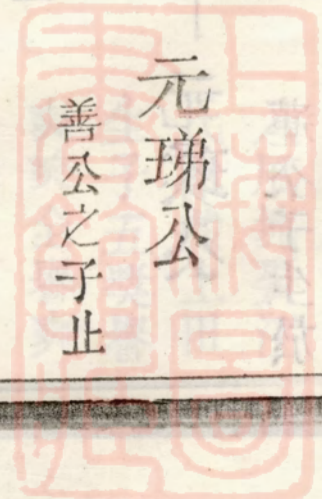 元珶公
善公之子止